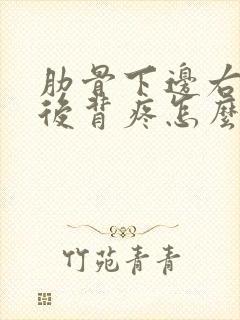 肋骨下邊右
後背疼怎麼
竹苑青青